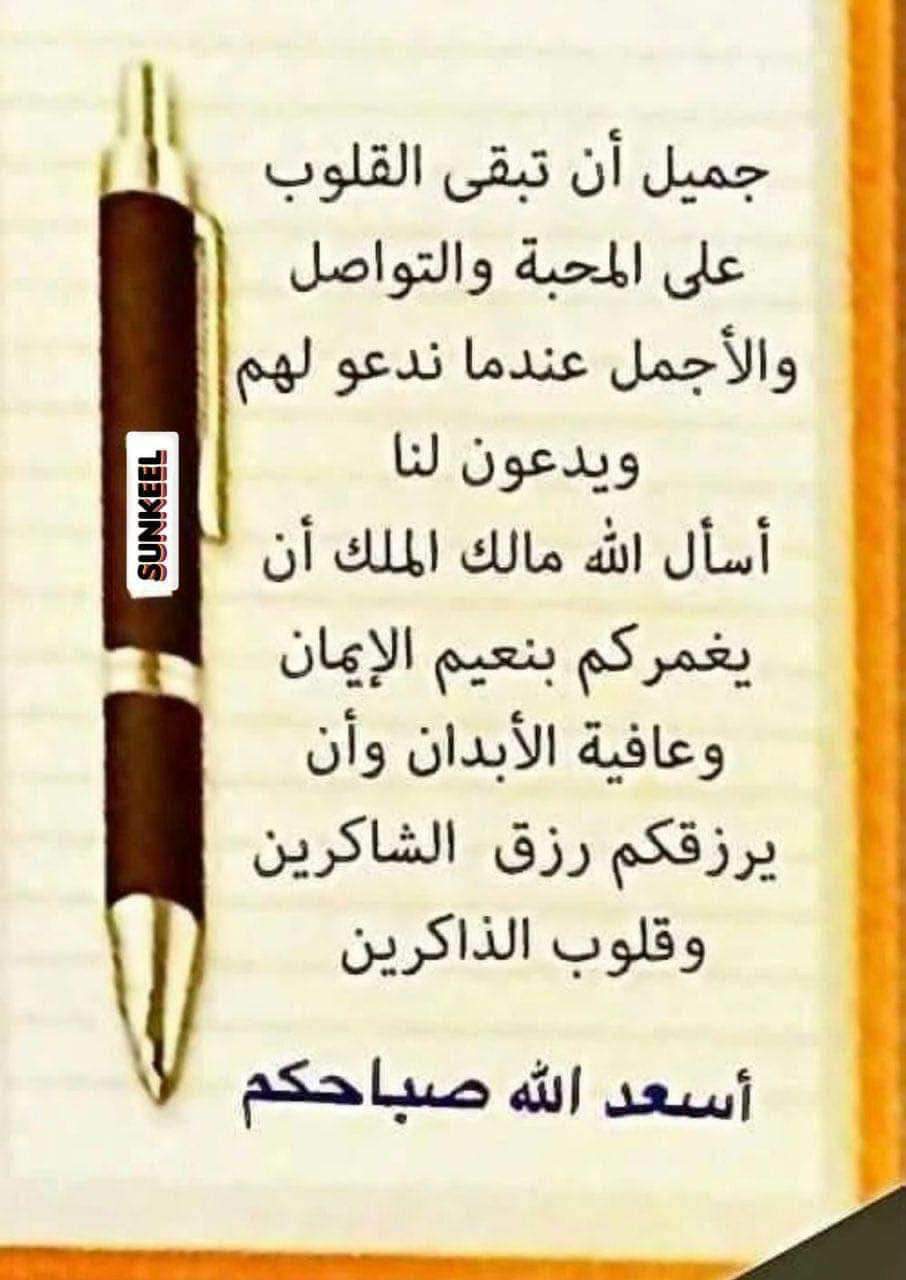 جميل أن تبقى القلوب
على المحبة والتواصل
والأجمل عندما ندعو لهم
ويدعون لنا
أسأل الله مالك الملك أن
يغمركم بنعيم الإيمان
وعافية الأبدان وأن
يرزقكم رزق الشاكرين
وقلوب الذاكرين
أسعد الله صباحكم
SUNKEEL